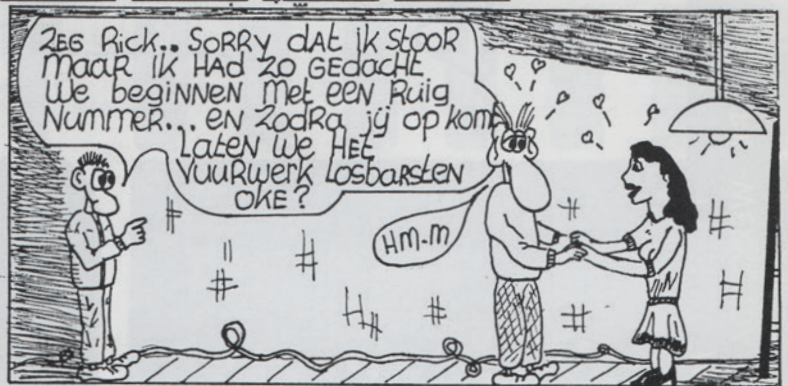 ZEG Rick.. SORRY dAt ik stooR
MAAR iK HAd zo GEdACHt
We beginnen Met een Ruig
Nummer... en zodra jij op komt
LAten We Het
Vuurwerk Losbarsten
OKE?
HM-M